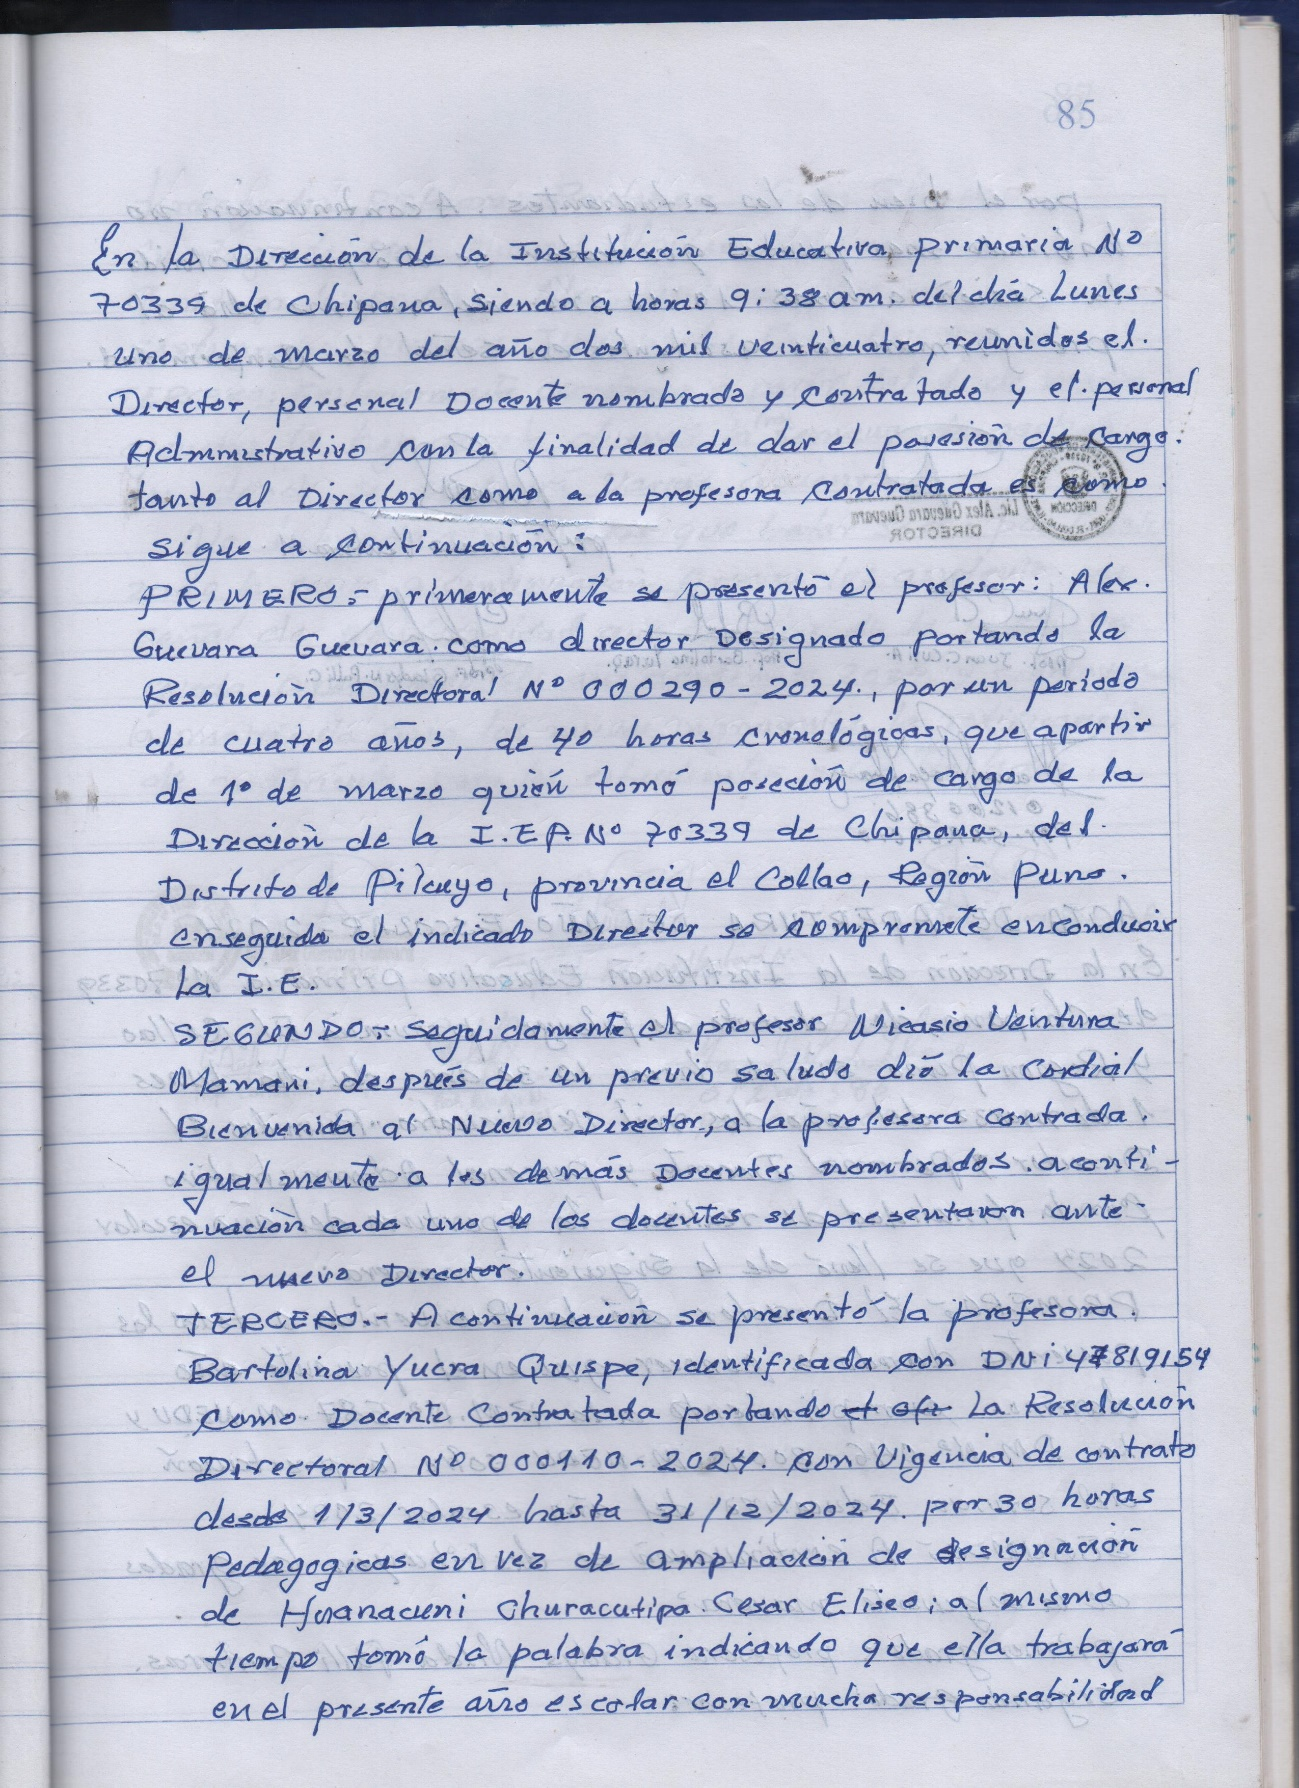 85
En la Dirección de la Institución Educativa primaria Nº
70339 de Chipana, siendo a horas 9:38 am. del día Lunes
uno de marzo del año dos mil veinticuatro, reunidos el.
Director, personal Docente nombrado y contratado y el personal
Administrativo con la finalidad de dar el posesión de cargo.
tanto al Director como a la profesora contratada es como.
sigue a continuación:
PRIMERO.- primeramente se presentó el profesor: Alex.
Guevara Guevara. como director Designado portando la
Resolución Directoral Nº 000290-2024., por un periodo
de cuatro años, de 40 horas cronológicas, que apartir
de 1º de marzo quién tomó poseción de cargo de la
Dirección de la I.E.P. Nº 70339 de Chipana, del.
Distrito de Pilcuyo, provincia el Collao, Región Puno.
enseguida el indicado Director se compromete en conducir
La I.E.
SEGUNDO.- seguidamente el profesor Nicasio Ventura
Mamani, después de un previo saludo dió la Cordial
Bienvenida al Nuevo Director, a la profesora contrada.
igualmente a los demás Docentes nombrados. aconti-
nuación cada uno de los docentes se presentaron ante-
el nuevo Director.
TERCERO.- A continuación se presentó la profesora.
Bartolina Yucra Quispe, identificada con DNI 47819154
como Docente Contratada portando La Resolución
Directoral Nº 000110-2024. con Vigencia de contrato
desde 1/3/2024 hasta 31/12/2024. por 30 horas
Pedagogicas en vez de ampliación de designación
de Huanacuni Churacutipa Cesar Eliseo; al mismo
tiempo tomó la palabra indicando que ella trabajará
en el presente año escolar con mucha responsabilidad
Lic. Alex Guevara Guevara
DIRECTOR